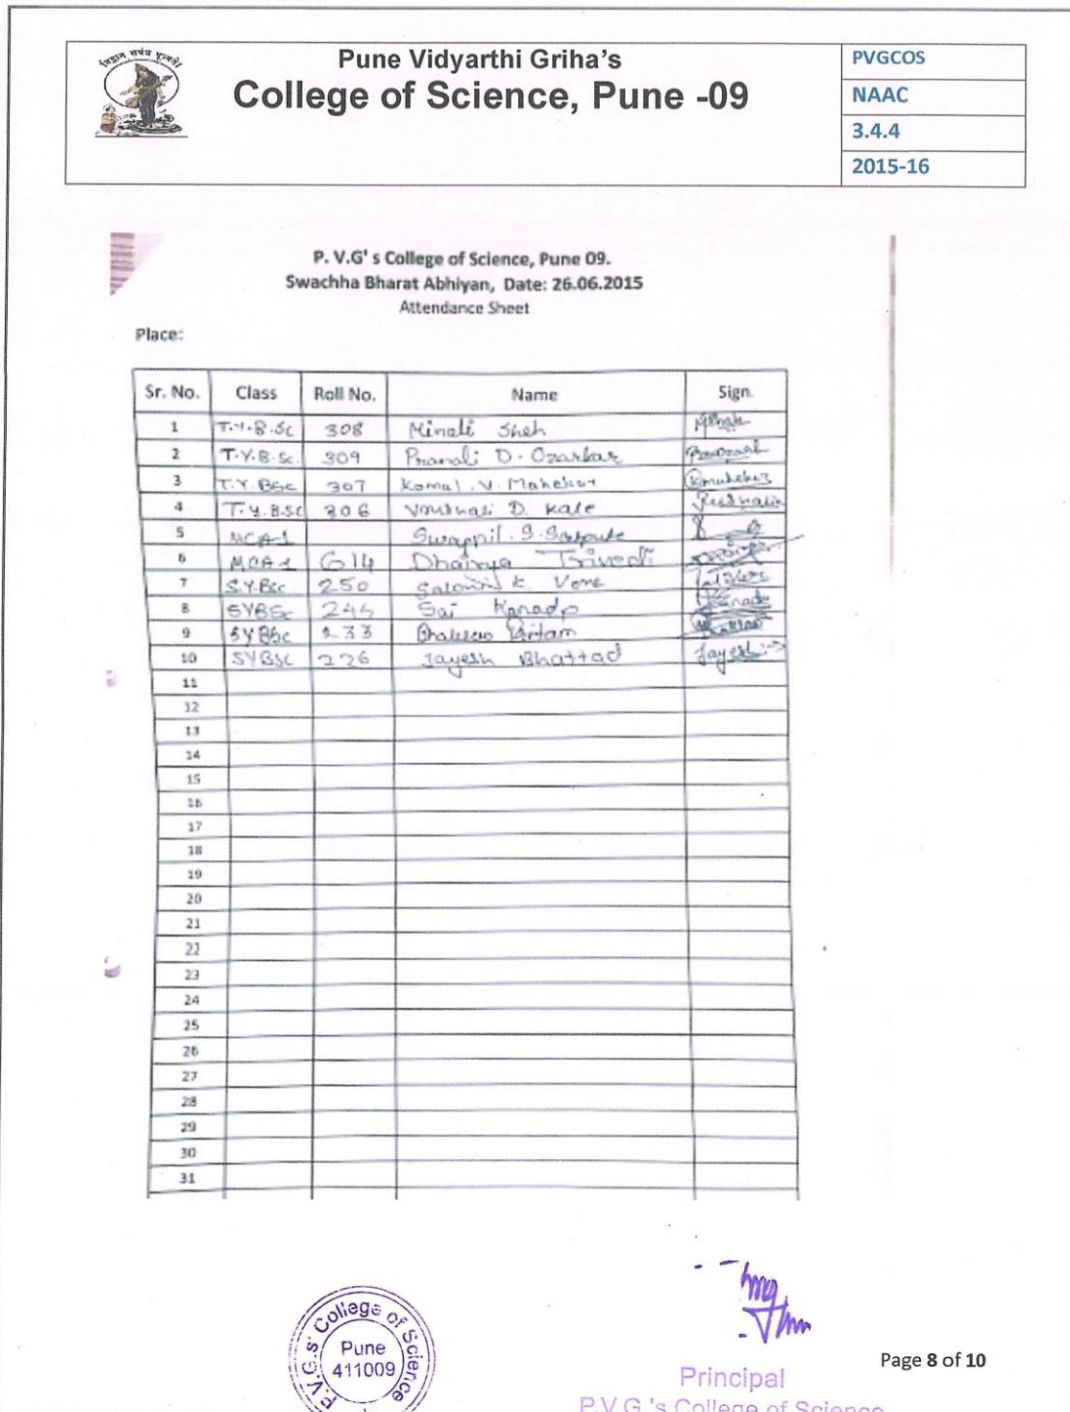 विद्वान सर्वत्र पूज्यते
Pune Vidyarthi Griha's
College of Science, Pune -09
PVGCOS
NAAC
3.4.4
2015-16
P. V.G' s College of Science, Pune 09.
Swachha Bharat Abhiyan, Date: 26.06.2015
Attendance Sheet
Place:
Sr. No. Class Roll No. Name Sign.
1 T.Y.B.Sc 308 Minali Shah
2 T.Y.B.Sc. 309 Pranali D. Ozarkar
3 T.Y. BSc 307 Komal. V. Mahekar
4 T.Y.B.SC 306 Vaishali D. Kale
5 MCA-1 Swappil. S. Satpute
6 MCA 1 614 Dhairya Trivedi
7 S.Y.BSc 250 K. Vone
8 SYBSc 244 Sai Kanade
9 SYBSc 233 Pritam
10 SYBSC 226 Jayesh Bhattad Jayesh
11
12
13
14
15
16
17
18
19
20
21
22
23
24
25
26
27
28
29
30
31
P.V.G.s' College of Science
Pune
411009
Principal
P.V.G.'s College of Science
Page 8 of 10